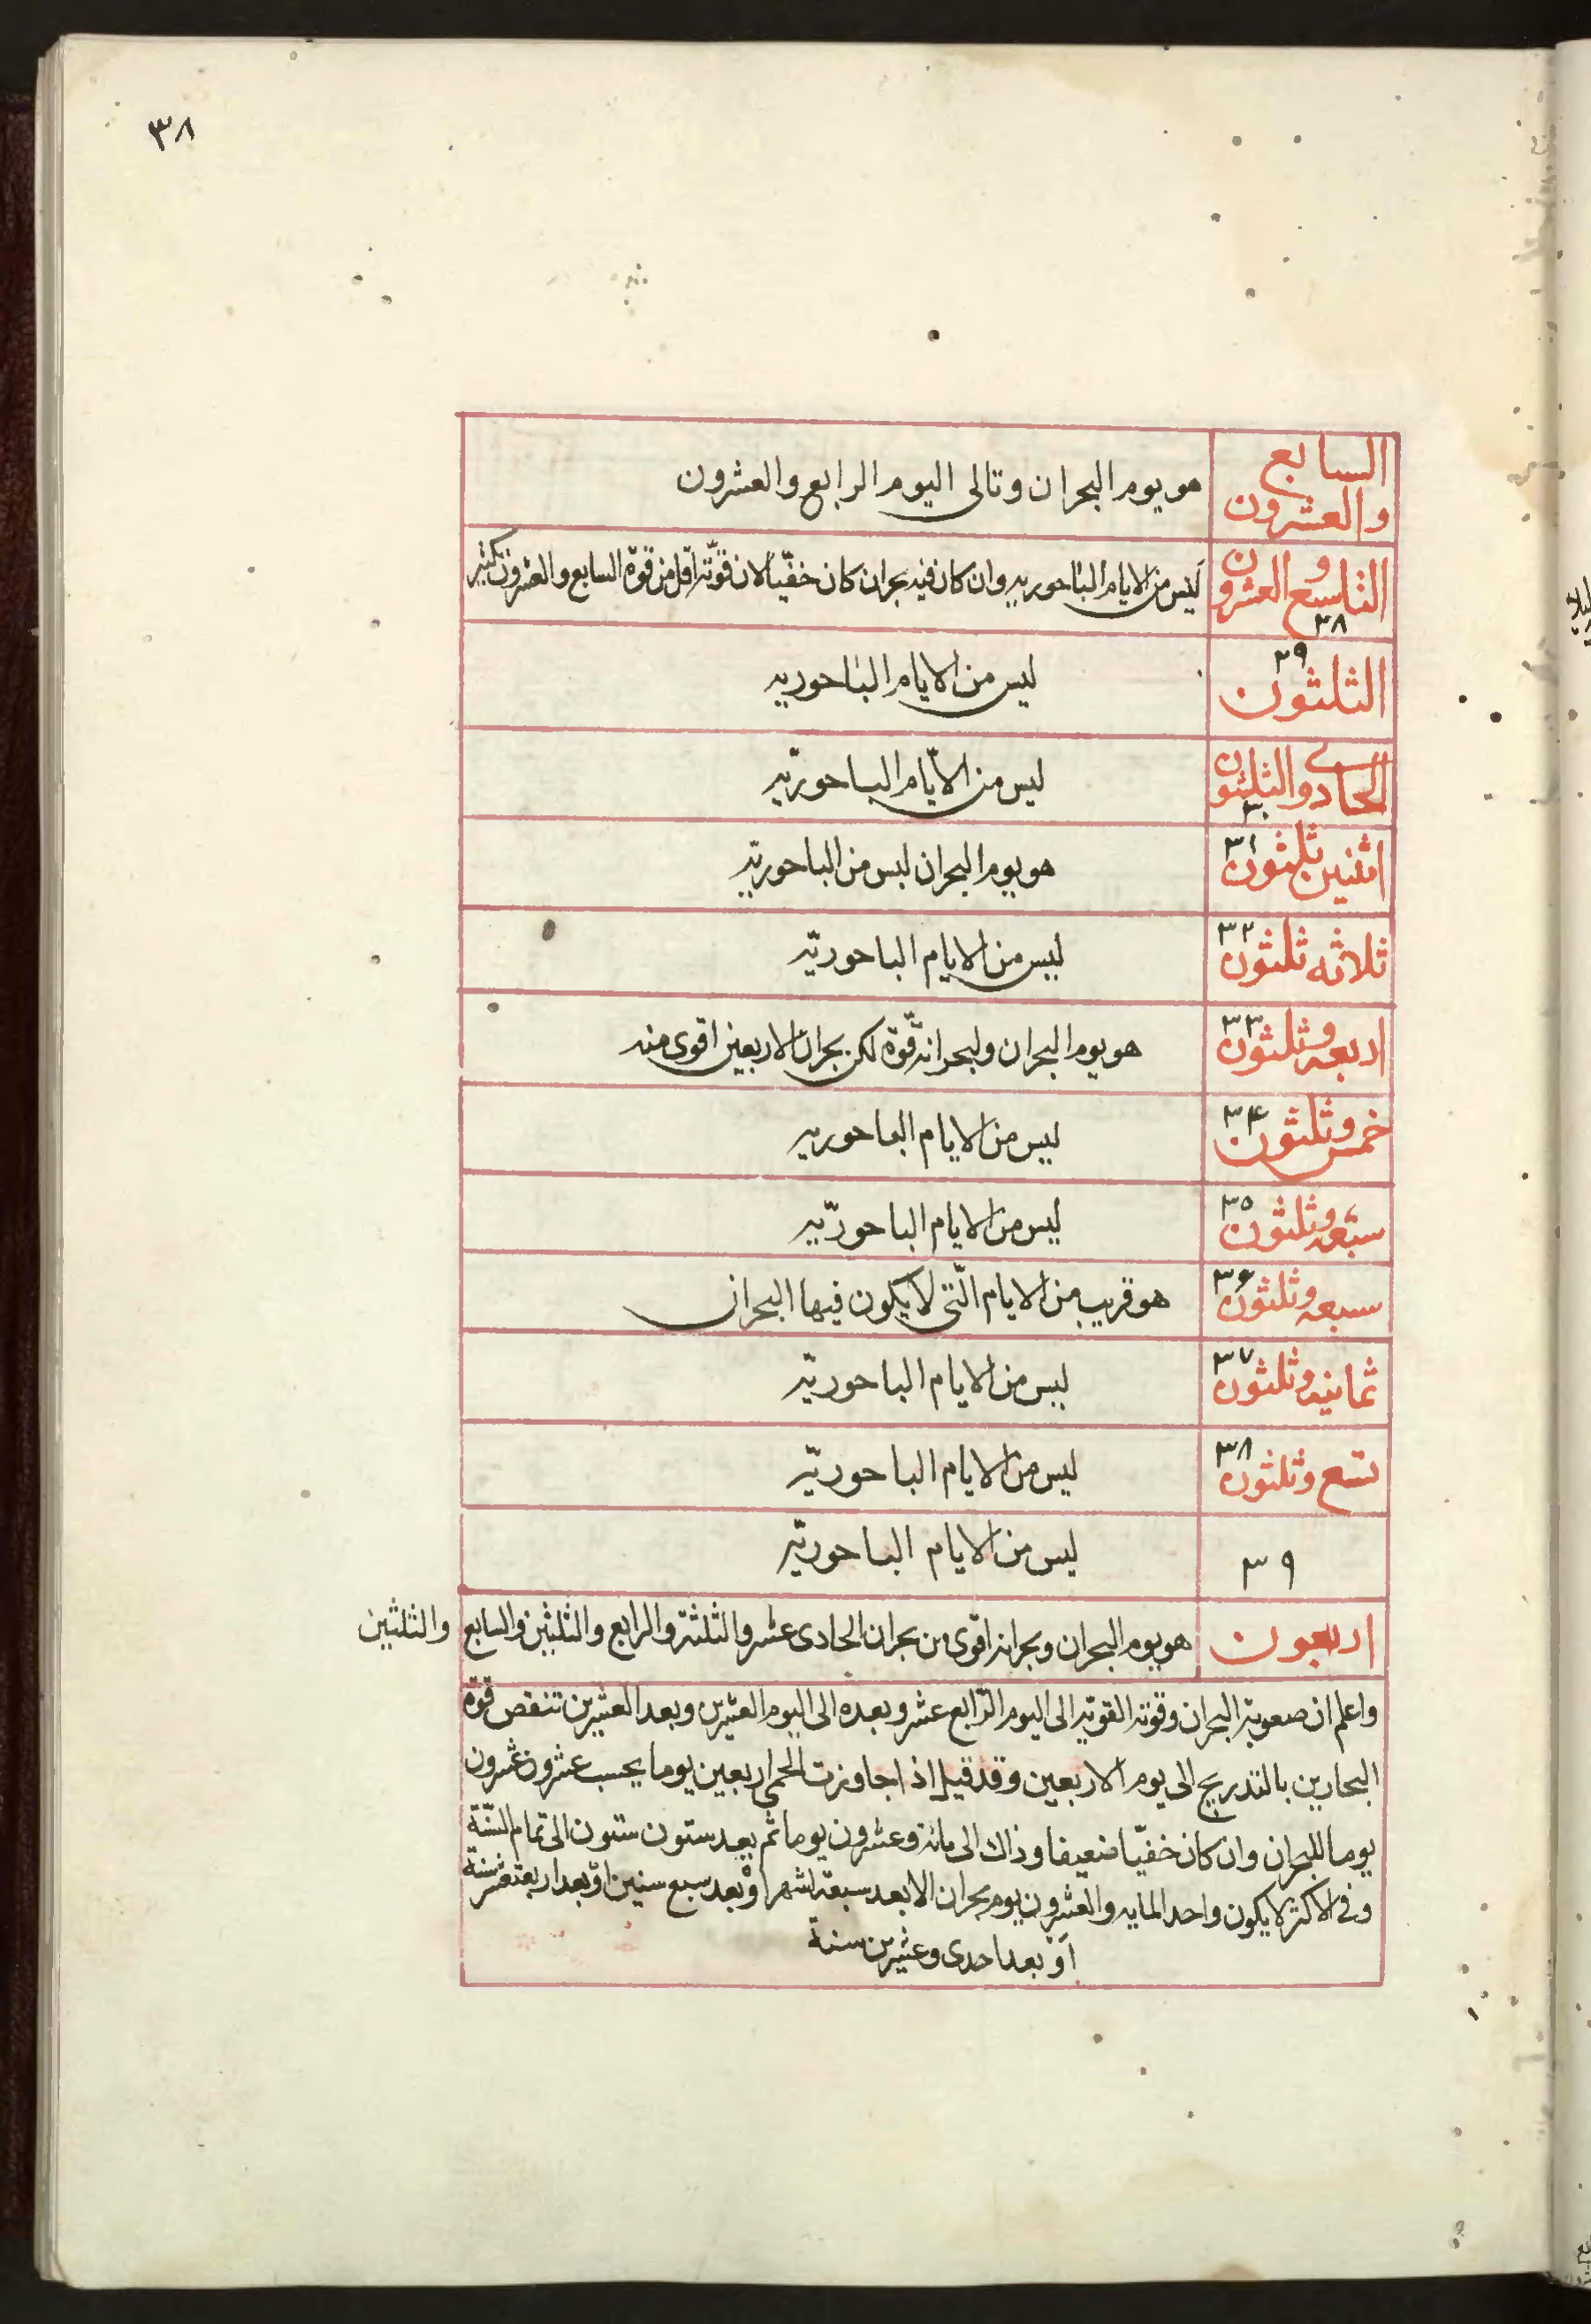 ٣٨
السابع والعشرون هو يوم البحران وتالى اليوم الرابع والعشرون
التاسع والعشرون ٢٨ ليس من الايام الباحوريه وان كان فيه بحران كان خفيّا لان قوّته اقل من قوة السابع والعشرون بكثير
الثلثون ٢٩ ليس من الايام الباحوريه
الحادى والثلثون ٣٠ ليس من الايّام الباحوريّه
اثنين ثلثون ٣١ هو يوم البحران ليس من الباحوريّه
ثلاثه ثلثون ٣٢ ليس من الايام الباحوريّه
اربعه وثلثون ٣٣ هو يوم البحران ولبحرانه قّوة لكن بحران الاربعين اقوى منه
خمس وثلثون ٣٤ ليس من الايام الباحوريه
ستعه وثلثون ٣٥ ليس من الايام الباحوريّه
سبعه وثلثون ٣۶ هو قريب من الايام الّتى لا يكون فيها البحران
ثمانيه وثلثون ٣٧ ليس من الايام الباحوريّه
تسع وثلثون ٣٨ ليس من الايام الباحوريّه
٣٩ ليس من الايام الباحوريّه
اربعون هو يوم البحران وبحرانه اقوى من بحران الحادى عشر والثلثة والرابع والثلثين والسابع والثلثين
واعلم ان صعوبة البحران وقوته القويه الى اليوم الرّابع عشر وبعده الى اليوم العشرين وبعد العشرين تنقص قوة
البحارين بالتدريج الى يوم الاربعين وقد قيل اذا جاوزت الحمى اربعين يوما يحسب عشرون عشرون
يوما للبحران وان كان خفيّا ضعيفا وذلك الى مائة وعشرون يوما ثم بعد ستون ستون الى تمام السّنة
وفى الاكثر لا يكون واحد المايه والعشرون يوم بحران الا بعد سبعة اشهر اوْ بعد سبع سنين اوْ بعد اربعة عشر سنة
اَوْ بعد احدى وعشرين سنة